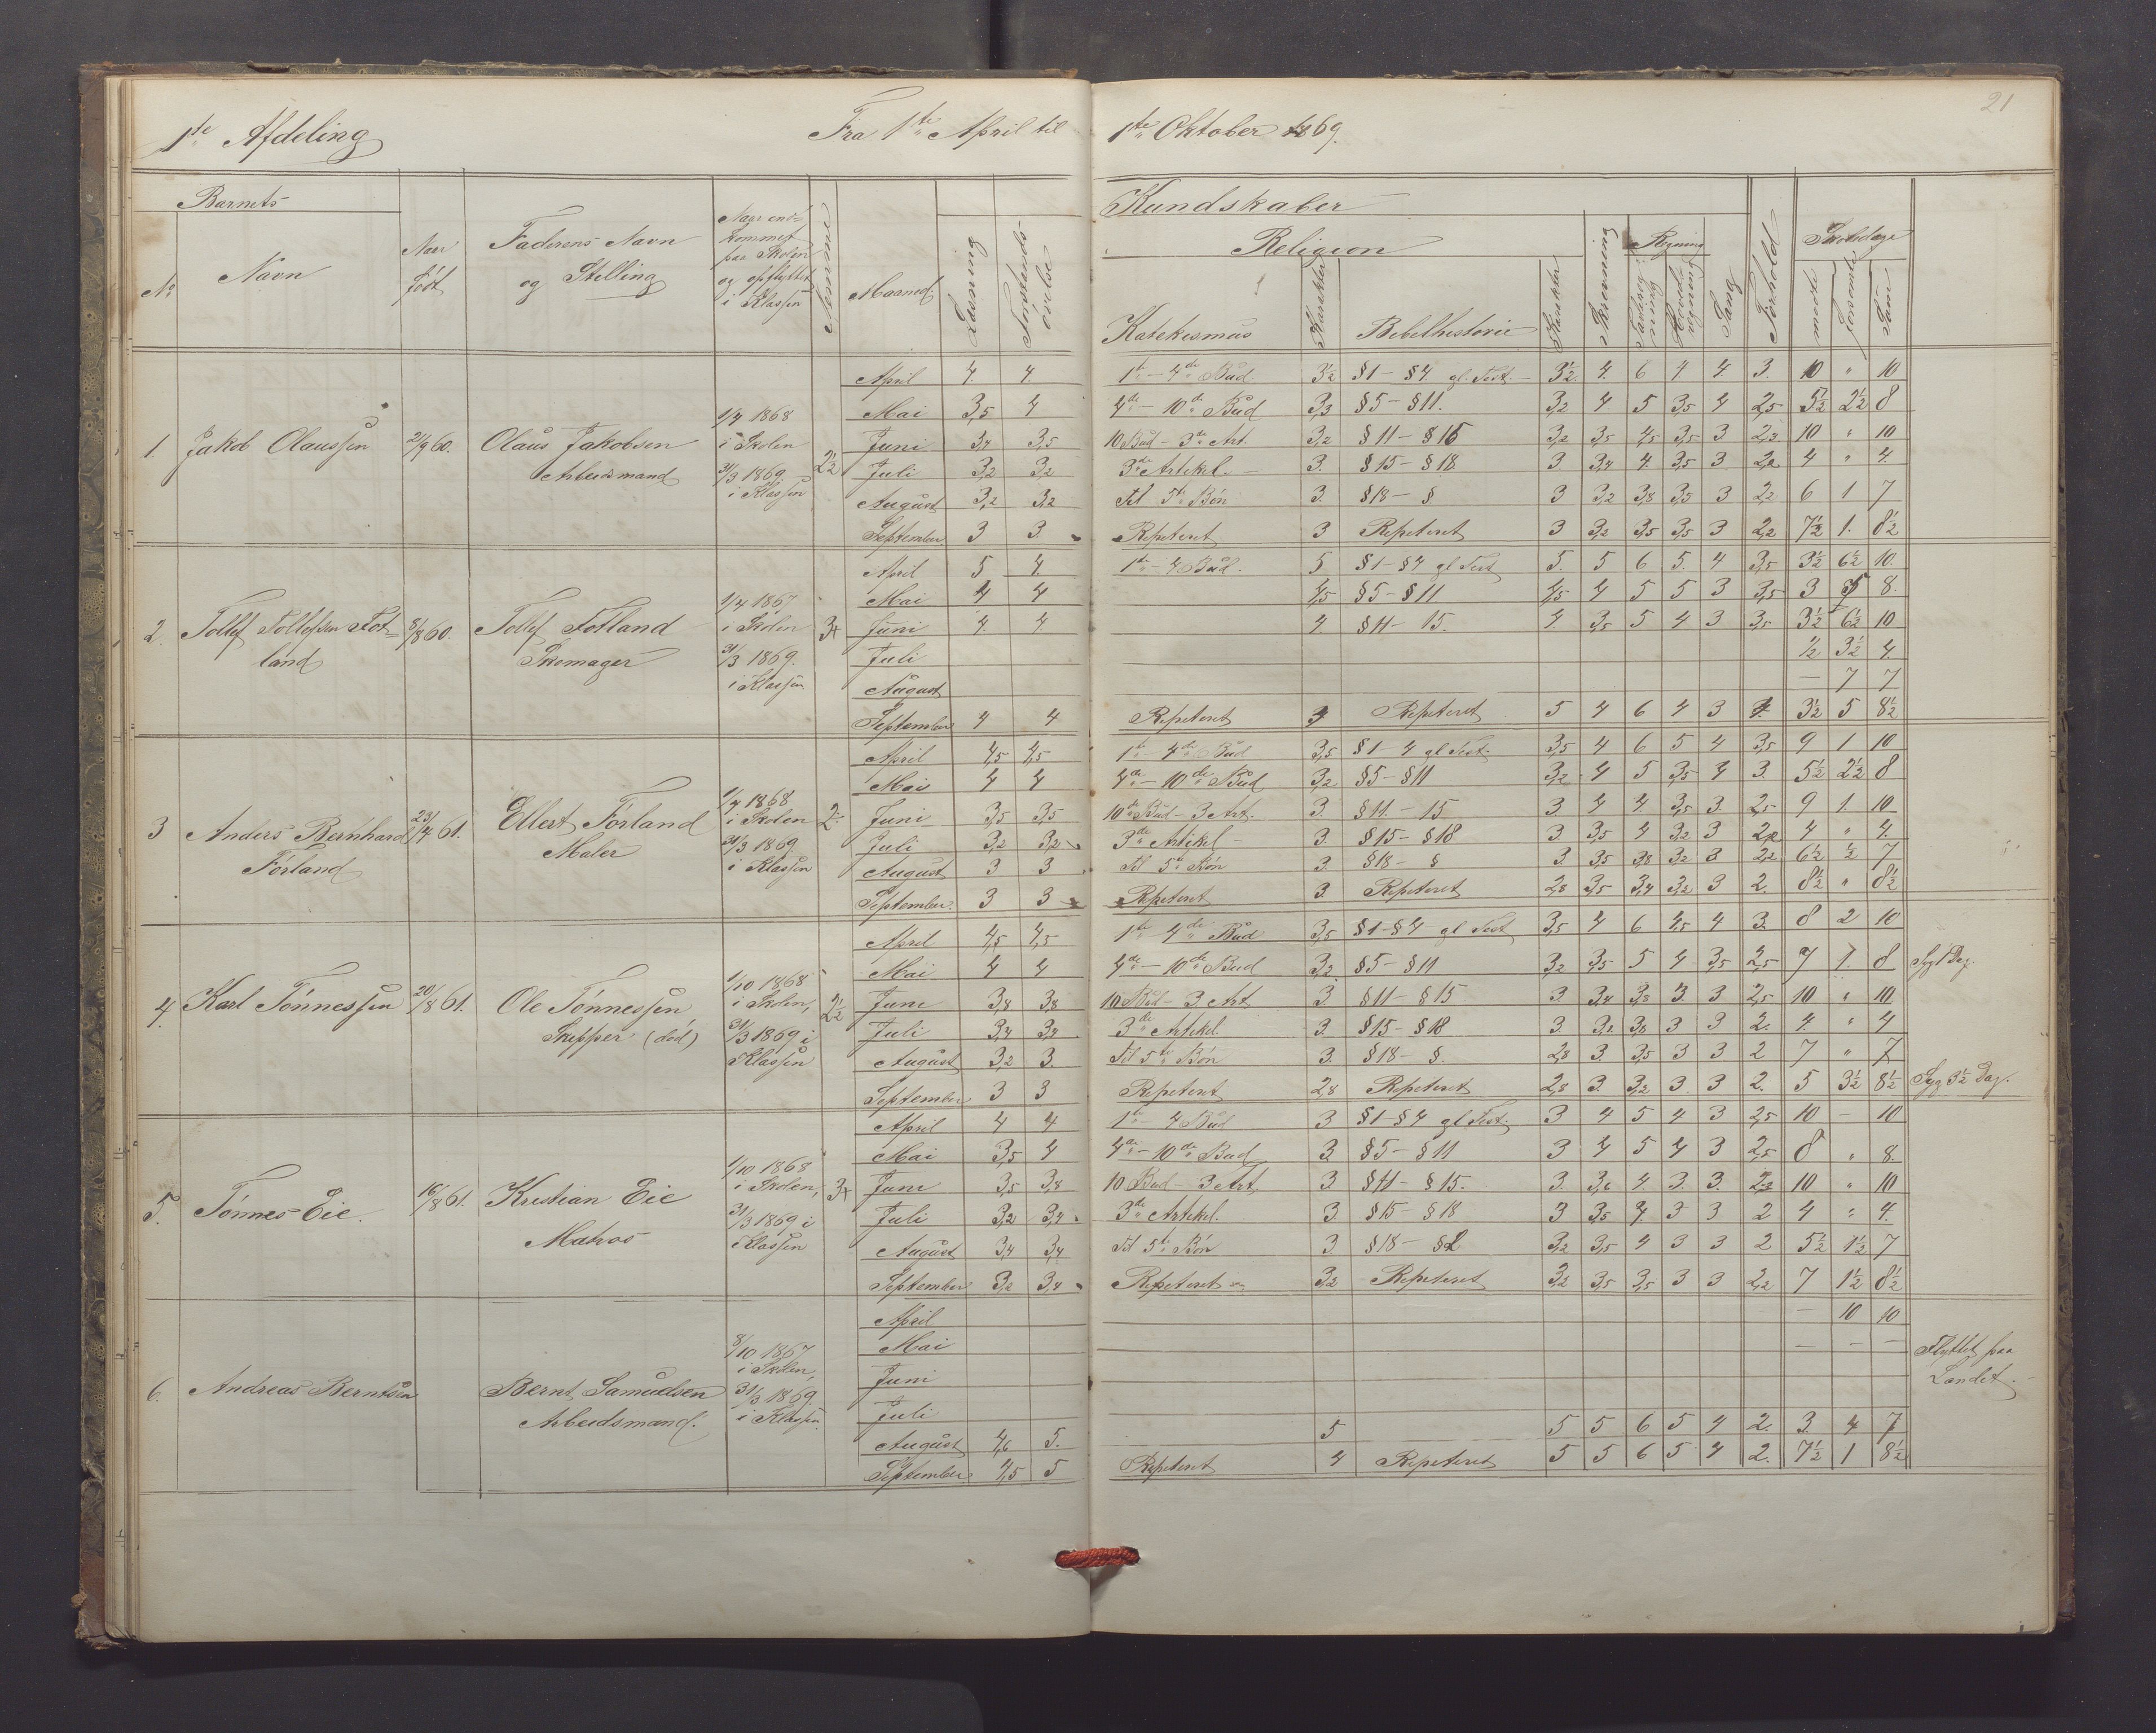 21
1ste Afdeling Fra 1ste April til 1ste Oktober 1869.
Barnets Kundskaber
No Navn Naar født Faderens Navn og Stilling Naar indkommet paa Skolen og opflyttet i Klassen Maaned Læsning Forstandsøvelse Religion Katekismus Karakter Bibelhistorie Karakter Skrivning Regning Tavleregning Hovedregning Sang Forhold Skoledage mødt forsømte Sum
April 4. 4. 1ste - 4de Bud. 3½ §1 - §4 gl. Test. - 3½. 4. 6 4 4 3. 10 " 10
Mai 3,5 4 4de - 10de Bud 3,3 §5 - §11. 3,2 4 5 3,5 4 2,5 5½ 2½ 8
1. Jakob Olaussen 2/9 60. Olaus Jakobsen Arbeidsmand 1/4 1868 i Skolen 31/3 1869 i Klassen 2½ Juni 3,4 3,5 10 Bud - 3de Art. 3,2 §11 - §15 3,2 3,5 4,5 3,5 3 2,3 10 " 10
Juli 3,2 3,2 3de Artikel. - 3. §15 - §18 3. 3,4 4. 3,5 3 2,2 4 " 4.
August 3,2 3,2 Til 5te Bøn 3. §18 - § 3 3,2 3,8 3,5 3 2,2 6 1 7
September 3 3. Repeteret 3 Repeteret 3 3,2 3,5 3,5 3 2,2 7½ 1. 8½
April 5 4. 1ste - 4 Bud. 5 §1 - §4 gl Test 5. 5 6 5. 4 3,5 3½ 6½ 10.
Mai 4 4 4,5 §5 - §11 4,5 4 5 5 3 3,5 3 5 8.
2. Tollef Tollefsen Fotland 8/8 60. Tollef Fotland Skomager 1/4 1867 i Skolen 31/3 1869. i Klassen 3+ Juni 4. 4. 4. §11 - 15. 4 3,5 5 4 3 3,5 3½ 6½ 10
Juli ½ 3½ 4.
August - 7 7
September 4 4 Repeteret Repeteret 5 4 6 4 3 3½ 5 8½
April 4,5 4,5 1ste - 4de Bud 3,5 §1 - 4 gl Test. 3,5 4 6 5 4 3,5 9 1 10
Mai 4 4 4de - 10de Bud 3,2 §5 - §11 3,2 4 5 3,5 4 3. 5½ 2½ 8
3 Anders Bernhard Førland 23/4 61. Ellert Førland Maler 1/4 1868 i Skolen 31/3 1869. i Klassen 2÷ Juni 3,5 3,5 10de Bud - 3 Art. 3. §11. - 15 3 4 4. 3,5 3. 2,5 9 1. 10
Juli 3,2 3,2 3de Artikel - 3. §15 - §18 3 3,5 4 3,2 3 2,2 4 " 4.
August 3 3 Til 5te Bøn 3. §18 - § 3 3,5 3,8 3,2 3 2,2 6½ ½ 7
September. 3 3 Repeteret 3. Repeteret 2,8 3,5 3,4 3,2 3 2. 8½ " 8½
April 4,5 4,5 1ste - 4de Bud 3,5 §1 - §4 gl Test 3,5 4 6 4,5 4 3. 8 2 10
Mai 4 4 4de - 10de Bud 3,2 §5 - §11 3,2 3,5 5 4 3,5 2,5 7 1. 8 Syg 1 Dag.
4. Karl Tønnessen 20/8 61. Ole Tønnessen, Skipper (død) 1/10 1868 i Skolen, 31/3 1869 i Klassen 2½ Juni 3,8 3,8 10 Bud - 3 Art 3. §11 - §15 3. 3,4 3,8 3. 3 2,5 10 " 10
Juli 3,4 3,4 3de Artikel 3. §15 - §18 3 3,2 3,8 3 3 2. 4. " 4
August 3,2 3. Til 5te Bøn 3. §18 - §. 2,8 3. 3,5 3 3 2 7 " 7
September 3 3 Repeteret 2,8 Repeteret 2,8 3. 3,2 3 3 2. 5 3½ 8½ Syg 3½ Dag.
April 4 4 1ste - 4 Bud 3 §1 - §4 gl Test. 3 4 5 4 3 2,5 10 - 10
Mai 3,5 4 4de - 10de Bud 3 §5 - §11 3 4 5 4 3 2,5 8 " 8.
5. Tønnes Eie. 16/8 61. Kristian Eie Matros 1/10 1868 i Skolen, 31/3 1869 i Klassen 3+ Juni 3,5 3,8 10 Bud - 3 Art 3 §11 - §15. 3. 3,6 4. 3. 3. 2,3 10 " 10
Juli 3,2 3,4 3de Artikel. 3. §15 - §18 3 3,5 4. 3 3 2 4 " 4.
August 3,4 3,4 Til 5te Bøn 3. §18 - § 3,2 3,5 4 3 3 2 5½ 1½ 7
September 3,2 3,4 Repeteret 3,2 Repeteret 3,2 3,5 3,5 3 3 2,2 7 1½ 8½
April - 10 10
Mai - - - Flyttet paa Landet. -
6. Andreas Berntsen Bernt Samuelsen Arbeidsmand. 8/10 1867 i Skolen, 31/3 1869. i Klassen. Juni
Juli
August 4,6 5. 5 5 5 6 5 4 2. 3. 4 7
September 4,5 5 Repeteret 4 Repeteret 5 5 6 5 4 2. 7½ 1 8½